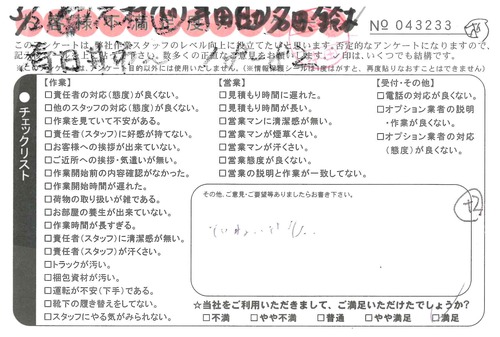 お客様不満足度
No 043233
このアンケートは、弊社作業スタッフのレベル向上に役立てたいと思います。否定的なアンケートになりますので、
【作業】
□責任者の対応(態度)が良くない。
□他のスタッフの対応(態度)が良くない。
□作業を見ていて不安がある。
□責任者(スタッフ)に好感が持てない。
□お客様への挨拶が出来ていない。
□ご近所への挨拶・気遣いが無い。
□作業開始前の内容確認がなかった。
□作業開始時間が遅れた。
□荷物の取り扱いが雑である。
□お部屋の養生が出来ていない。
□作業時間が長すぎる。
□責任者(スタッフ)に清潔感が無い。
□責任者(スタッフ)が汗くさい。
□トラックが汚い。
□梱包資材が汚い。
□運転が不安(下手)である。
□靴下の履き替えをしてない。
□スタッフにやる気がみられない。
【営業】
□見積もり時間に遅れた。
□見積もり時間が長い。
□営業マンに清潔感が無い。
□営業マンが煙草くさい。
□営業マンが汗くさい。
□営業態度が良くない。
□営業の説明と作業が一致してない。
【受付・その他】
□電話の対応が良くない。
□オプション業者の説明
・作業が良くない。
□オプション業者の対応
(態度)が良くない。
チェックリスト
その他、ご意見・ご要望等ありましたらお書き下さい。
☆当社をご利用いただきまして、ご満足いただけたでしょうか?
□不満 □やや不満 □普通 □やや満足 □満足